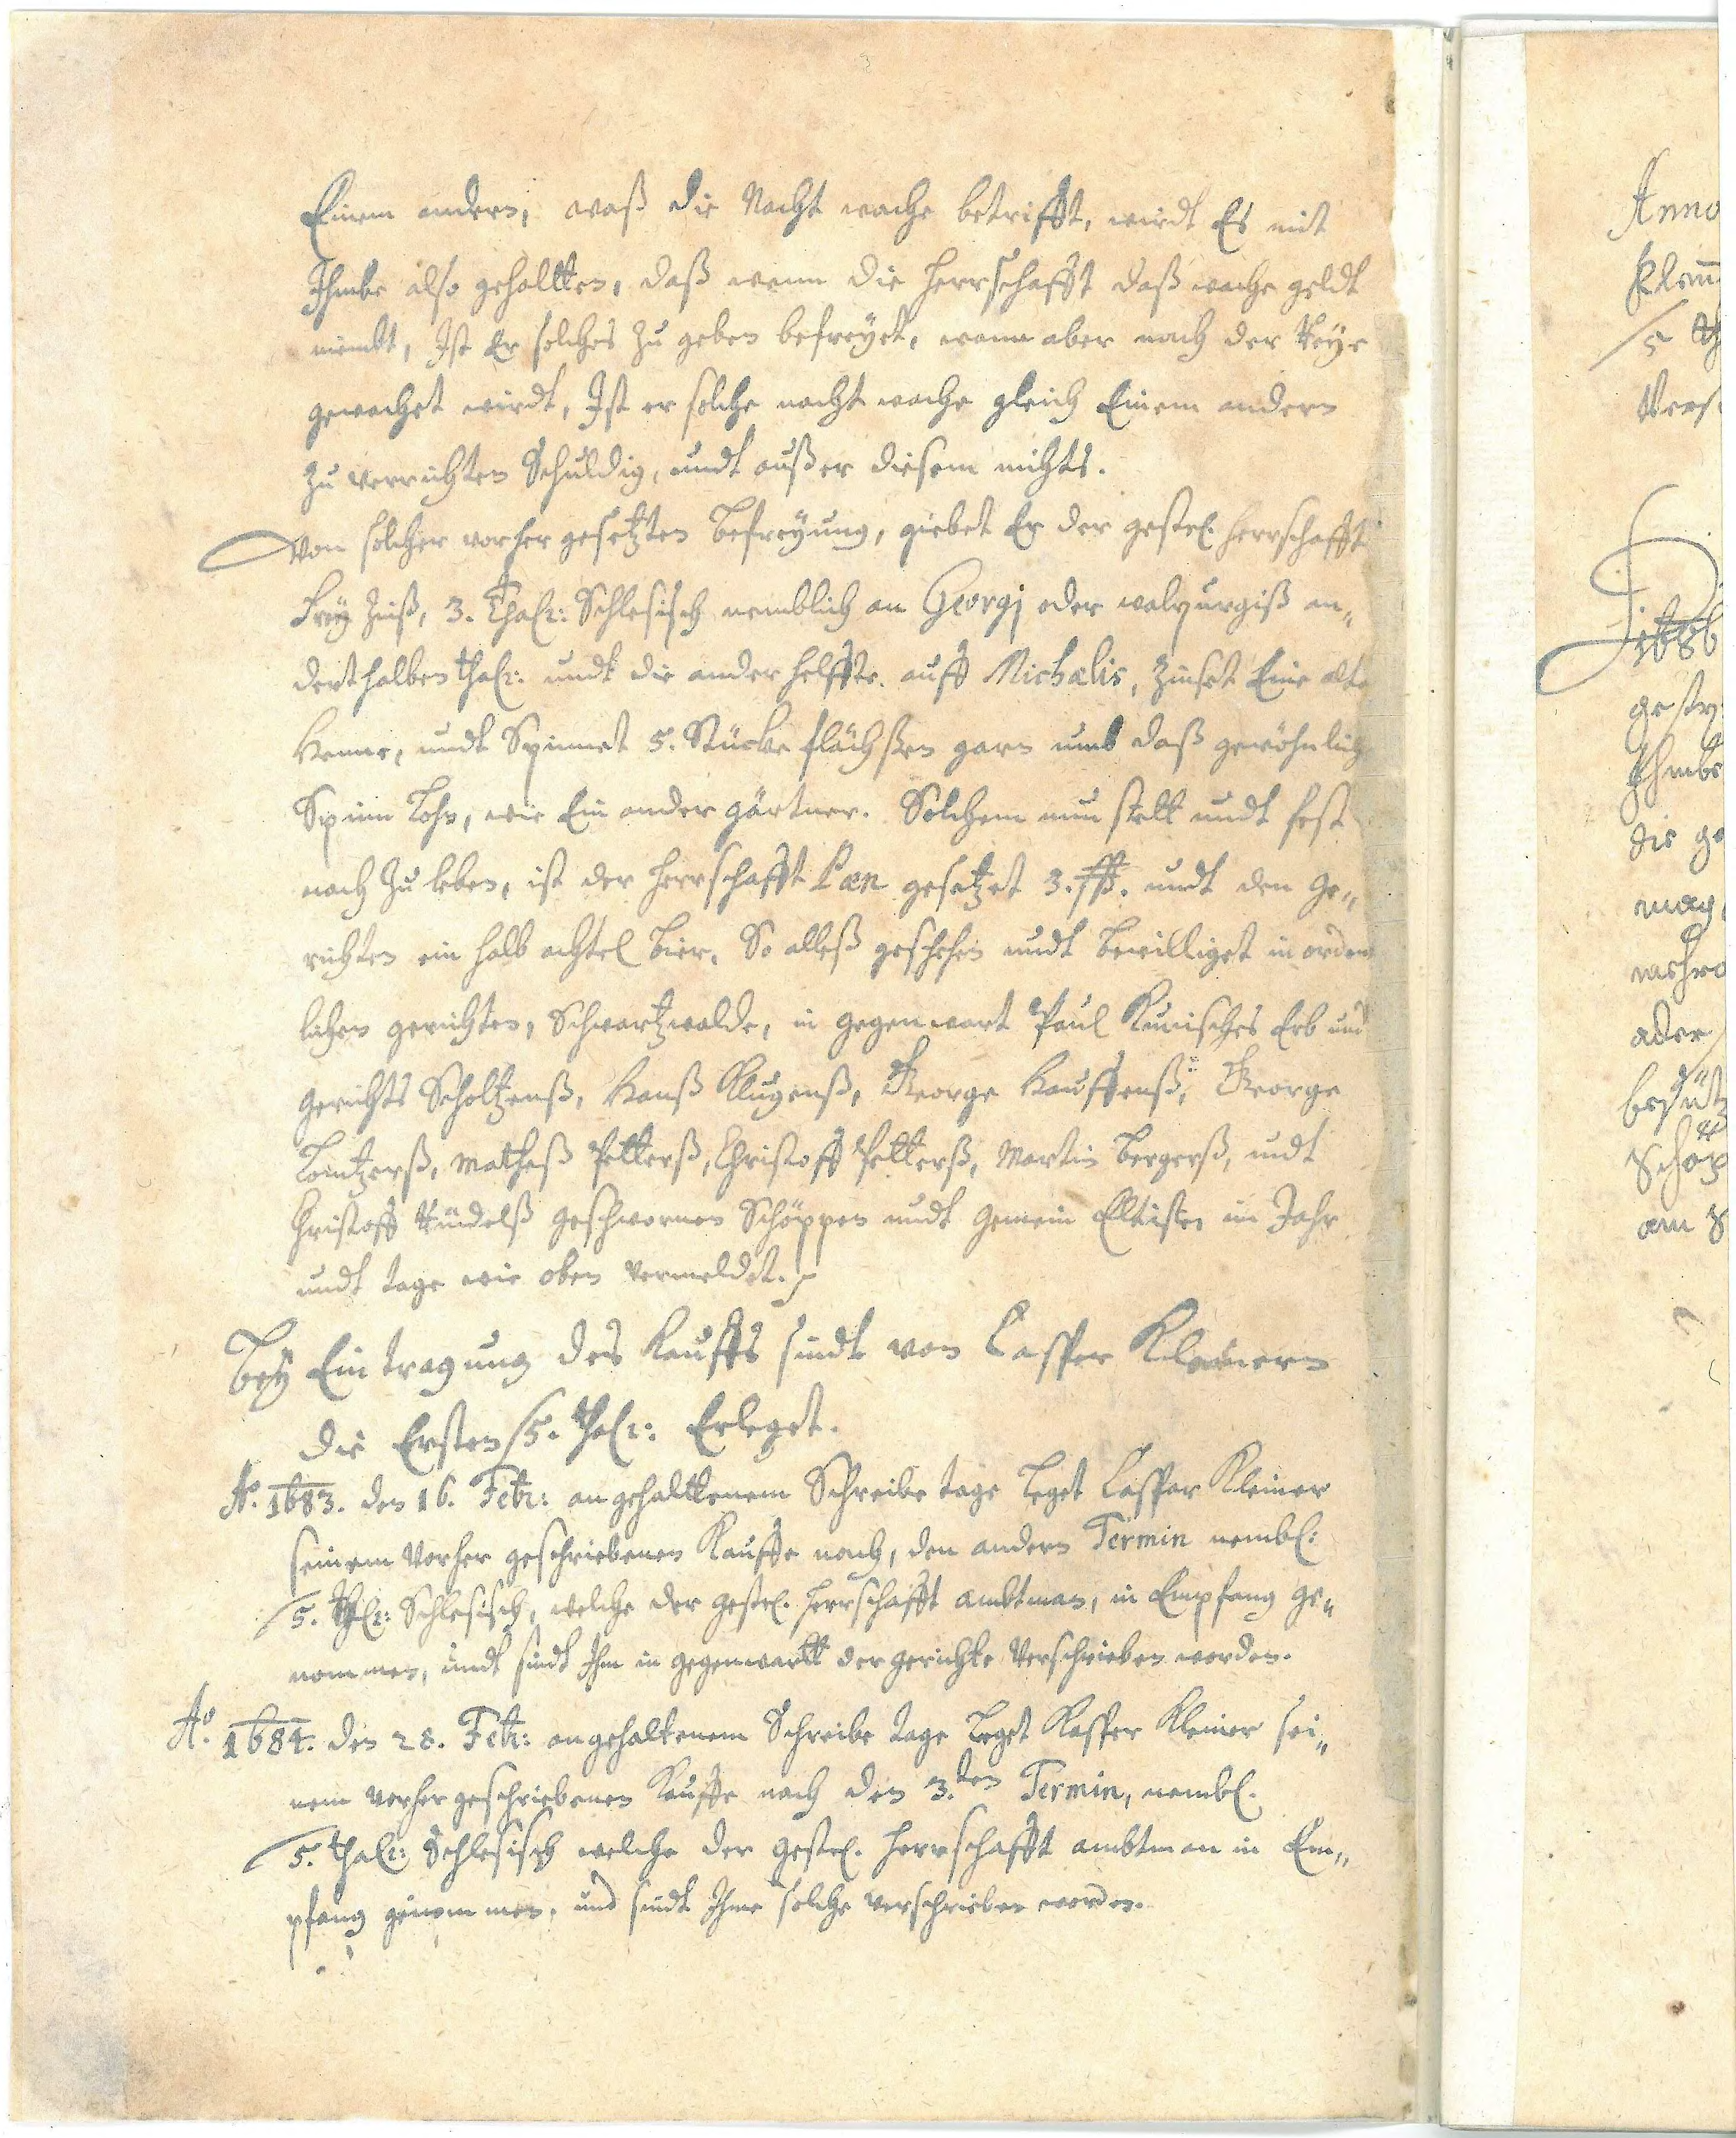 Einem andern, waß die Nacht wache betrifft, wirdt Es mit
Ihmbe also gehallten, daß wenn die Herrschafft daß wache geldt
niembt, Ist Er solches zu geben befreyet, wann aber nach der Reye
gewachet wirdt, Ist er solche nacht wache gleich Einem andern
zu verrichten Schuldig, undt außer diesem nichts.
Von solcher vorher gesetzten Befreyung, giebet Er der gestr. Herrschafft
Frey Zinß, 3. Thalr: Schlesisch nemblich an Georgj oder walpurgiß an„
derthalben thalr: undt die ander helffte auff Michælis, Zinset Eine alte
Henne, undt Spinnet 5. Stücke flächßen garn umb daß gewöhnliche
Spinn Lohn, wie Ein ander gärtner. Solchem nun stett undt fest
nach Zu leben, ist der Herrschafft Pæn gesetzet 3. undt den Ge„
richten ein halb achtel Bier. So alleß geschehen undt bewilliget in orden
lichen gerichten, Schwartzwalde, in gegenwart Paul Kunisches Erb und
gerichts Scholtzenß, Hanß Klugenß, George Hauffenß, George
Matheß Pätterß, Christoff Pätterß, Martin Bergerß, undt
Christoff Rudelß geschwornen Schöppen undt Gemein Elltiste, im Jahr
undt tage wie oben vermeldet.
Bey Eintragung des Kauffs sindt von Casper Kleinern
die Ersten 5. thalr: Erleget.
Ao. 1683. den 16. Febr: angehalltenem Schreibe tage Leget Casper Kleiner
seinem Vorher geschriebenen Kauffe nach, den andern Termin nembl:
5. Thlr: Schlesisch, welche der gestr. Herrschafft ambtman, in Empfang ge„
nommen, undt sindt Ihm in gegenwartt der gerichte Verschrieben worden.
Ao. 1684. den 28. Febr: angehaltenem Schreibe tage Leget Kasper Kleiner sei„
nem vorher geschriebenen Kauffe nach den 3.ten Termin, nembl.
5. thalr: Schlesisch welche der gestr. Herrschafft ambtman in Em„
pfang genommen, und sindt Ihme solche verschrieben worden.
Anno
5
1686
die ge
mag
ader
am S